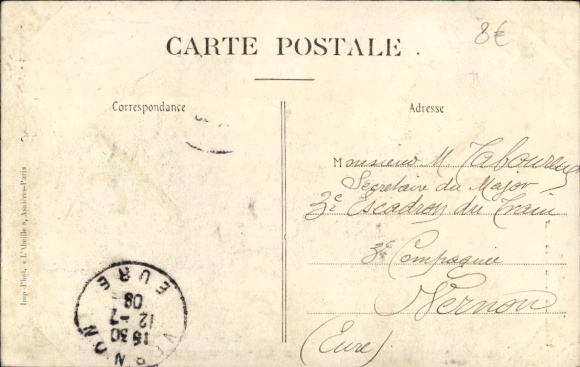 8€
CARTE POSTALE
Correspondance
Adresse
Monsieur M. Taboureux
Secretaire du Major
3e Escadron du Train
3e Compagnie
Vernon
(Eure)
Imp. Phot. « L'Abeille », Asnières-Paris
VERNON
EURE
16 30
12 - 7
08